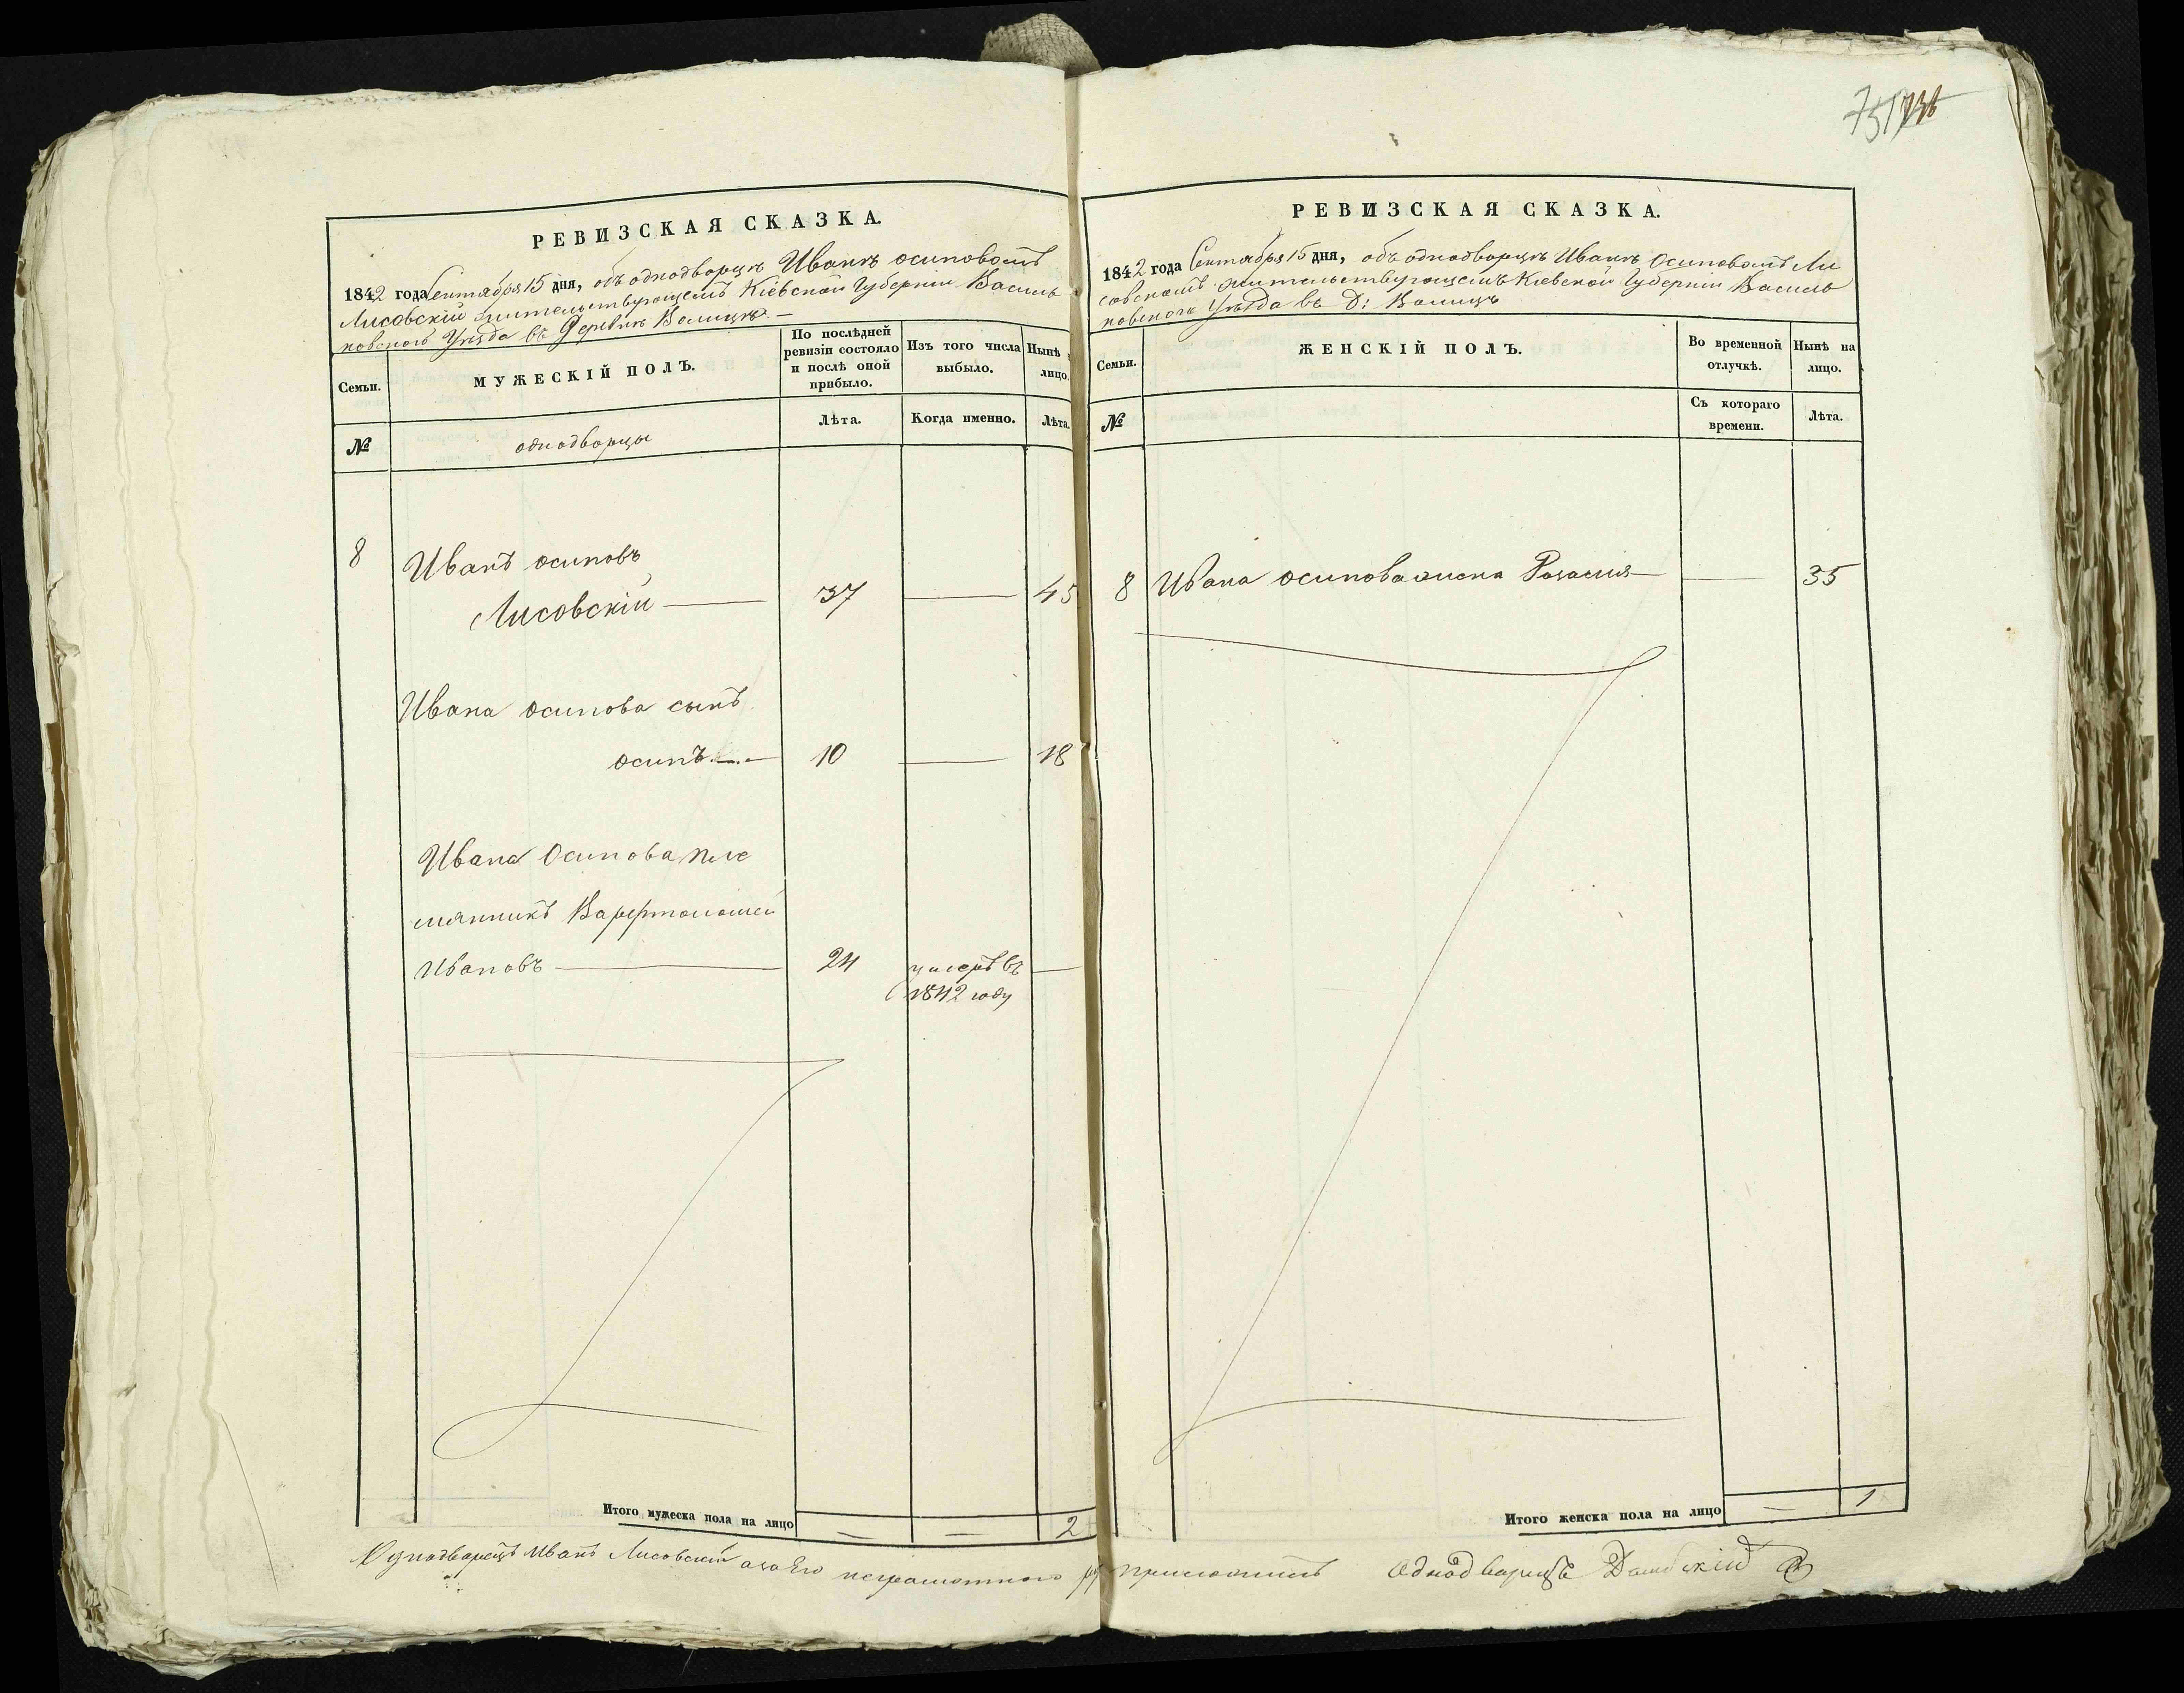 РЕВИЗСКАЯ СКАЗКА.
1842 года Сентября 15 дня, объ однодворцѣ Иванѣ осиповомъ
Лисовскій жительствующемъ Кіевской Губерніи Василь
ковского Уѣзда въ Деревнѣ Волицѣ. —
Семьи.
МУЖЕСКІЙ ПОЛЪ.
По послѣдней
ревизіи состояло
и послѣ оной
прибыло.
Изъ того числа
выбыло.
Нынѣ
лицо.
№
однодворцы
Лѣта.
Когда именно.
Лѣта.
8 Иванъ осиповъ
Лисовскій — 37 — 45
Ивана осипова сынъ
осипъ — 10 — 18
Ивана Осипова пле
мянникъ Варфтоломей
Ивановъ — 24 умеръ въ —
1842 году
Итого мужеска пола на лицо — — 2
Однодворецъ Иванъ Лисовскій а за Его неграмотного
РЕВИЗСКАЯ СКАЗКА.
1842 года Сентября 15 дня, объ однодворцѣ Иванѣ Осиповомъ Ли
совскомъ жительствующемъ Кіевской Губерніи Василь
ковского Уѣзда въ д: Волицѣ
Семьи.
ЖЕНСКІЙ ПОЛЪ.
Во временной
отлучкѣ.
Нынѣ на
лицо.
№
Съ котораго
времени.
Лѣта.
8 Ивана осипова жена Розалія — — 35
Итого женска пола на лицо — 1
однодворецъ